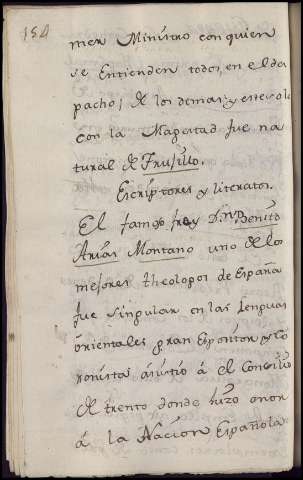 154
mer Ministro con quien
se Entienden todos, en el des
pacho, de los demas; y este solo
con la Magestad fue na
tural de Trusillo.
Escriptores y literatos.
El famoso frey D.n Benito
Arias Montano uno de los
mejores theologos de España
fue singular en las lenguas
orientales gran Expositor, y Co
ronista asistio á el Consilio
de trento donde hizo onor
á la Nacion Española